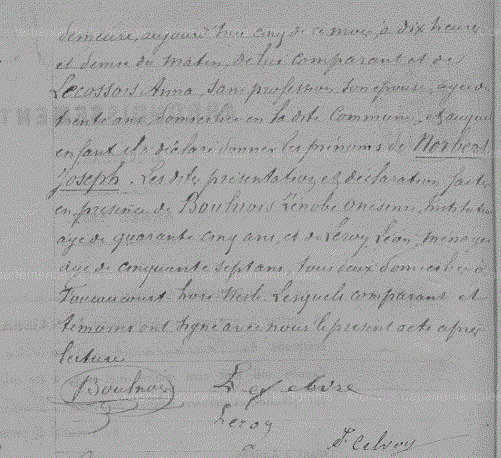 demeure, aujourd'hui cinq de ce mois, à dix heures
et demie du matin, de lui comparant et de
Lecossois Anna, sans profession, son épouse, agée de
trente ans, domiciliée en la dite Commune, et auquel
enfant il a déclaré donner les prénoms de Norbert
Joseph. Les dites présentation et déclaration faites
en présence de Boulnois Zénobe Onésime, Instituteur
agé de quarante cinq ans, et de Leroy Léon, ménager
agé de cinquante sept ans, tous deux domiciliés à
hors Marle. Lesquels comparant et
témoins ont signé avec nous le présent acte après
lecture
Boulnois Lefebvre
Leroy